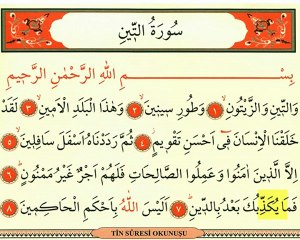 سُورَةُ التِّينِ
بِسْمِ اللّٰهِ الرَّحْمٰنِ الرَّحِيمِ
وَالتِّينِ وَالزَّيْتُونِ ﴿١﴾ وَطُورِ سِينِينَ ﴿٢﴾ وَهٰذَا الْبَلَدِ الْاَمِينِ ﴿٣﴾ لَقَدْ
خَلَقْنَا الْاِنْسَانَ فِٓي اَحْسَنِ تَقْوِيمٍ ﴿٤﴾ ثُمَّ رَدَدْنَاهُ اَسْفَلَ سَافِلِينَ ﴿٥﴾
اِلَّا الَّذِينَ اٰمَنُوا وَعَمِلُوا الصَّالِحَاتِ فَلَهُمْ اَجْرٌ غَيْرُ مَمْنُونٍ ﴿٦﴾
فَمَا يُكَذِّبُكَ بَعْدُ بِالدِّينِ ﴿٧﴾ اَلَيْسَ اللّٰهُ بِاَحْكَمِ الْحَاكِمِينَ ﴿٨﴾
TİN SÛRESİ OKUNUŞU